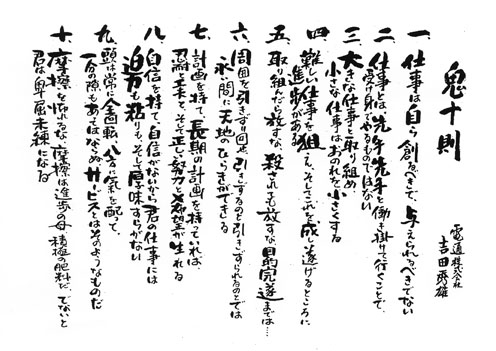 鬼十則
電通株式会社
吉田秀雄
一、仕事は自ら創るべきで、与えられるべきでない
二、仕事とは先手先手と働き掛けて行くことで、
受け身でやるものではない
三、大きな仕事と取り組め、
小さな仕事はおのれを小さくする
四、難しい仕事を狙え、そしてこれを成し遂げるところに
進歩がある
五、取り組んだら放すな、殺されても放すな、目的完遂までは…
六、周囲を引きずり回せ、引きずるのと引きずられるのとでは
永い間に天地のひらきができる
七、計画を持て、長期の計画を持っていれば、
忍耐と工夫と、そして正しい努力と希望が生れる
八、自信を持て、自信がないから君の仕事には
迫力も粘りも、そして厚味すらがない
九、頭は常に全回転、八方に気を配って、
一分の隙もあってはならぬ、サービスとはそのようなものだ
十、摩擦を怖れるな、摩擦は進歩の母、積極の肥料だ、でないと
君は卑屈未練になる